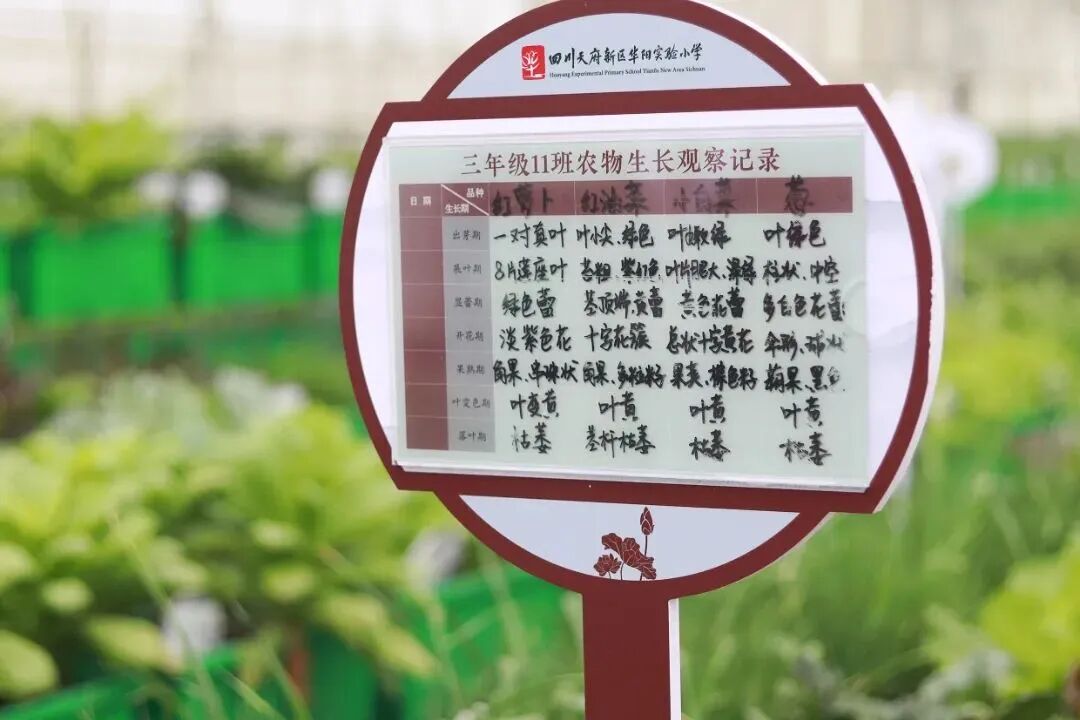 四川天府新区华阳实验小学
Huayang Experimental Primary School Tianfu New Area Sichuan
三年级11班农物生长观察记录
日期 品种 生长期 红萝卜 红油菜 小白菜 葱
出芽期 一对真叶 叶小尖、绿色 叶嫩绿 叶绿色
展叶期 8片莲座叶 苔粗、紫红色 叶片肥大、深绿 柱状、中空
显蕾期 绿色蕾 茎顶端、黄蕾 黄色花蕾 多白色花蕾
开花期 淡紫色花 十字花簇 总状十字黄花 伞形、球状
果熟期 角果、串珠状 角果、多粒籽 果荚、棕色籽 蒴果、黑色
叶变色期 叶变黄 叶黄 叶黄 叶黄
落叶期 枯萎 茎杆枯萎 枯萎 枯萎